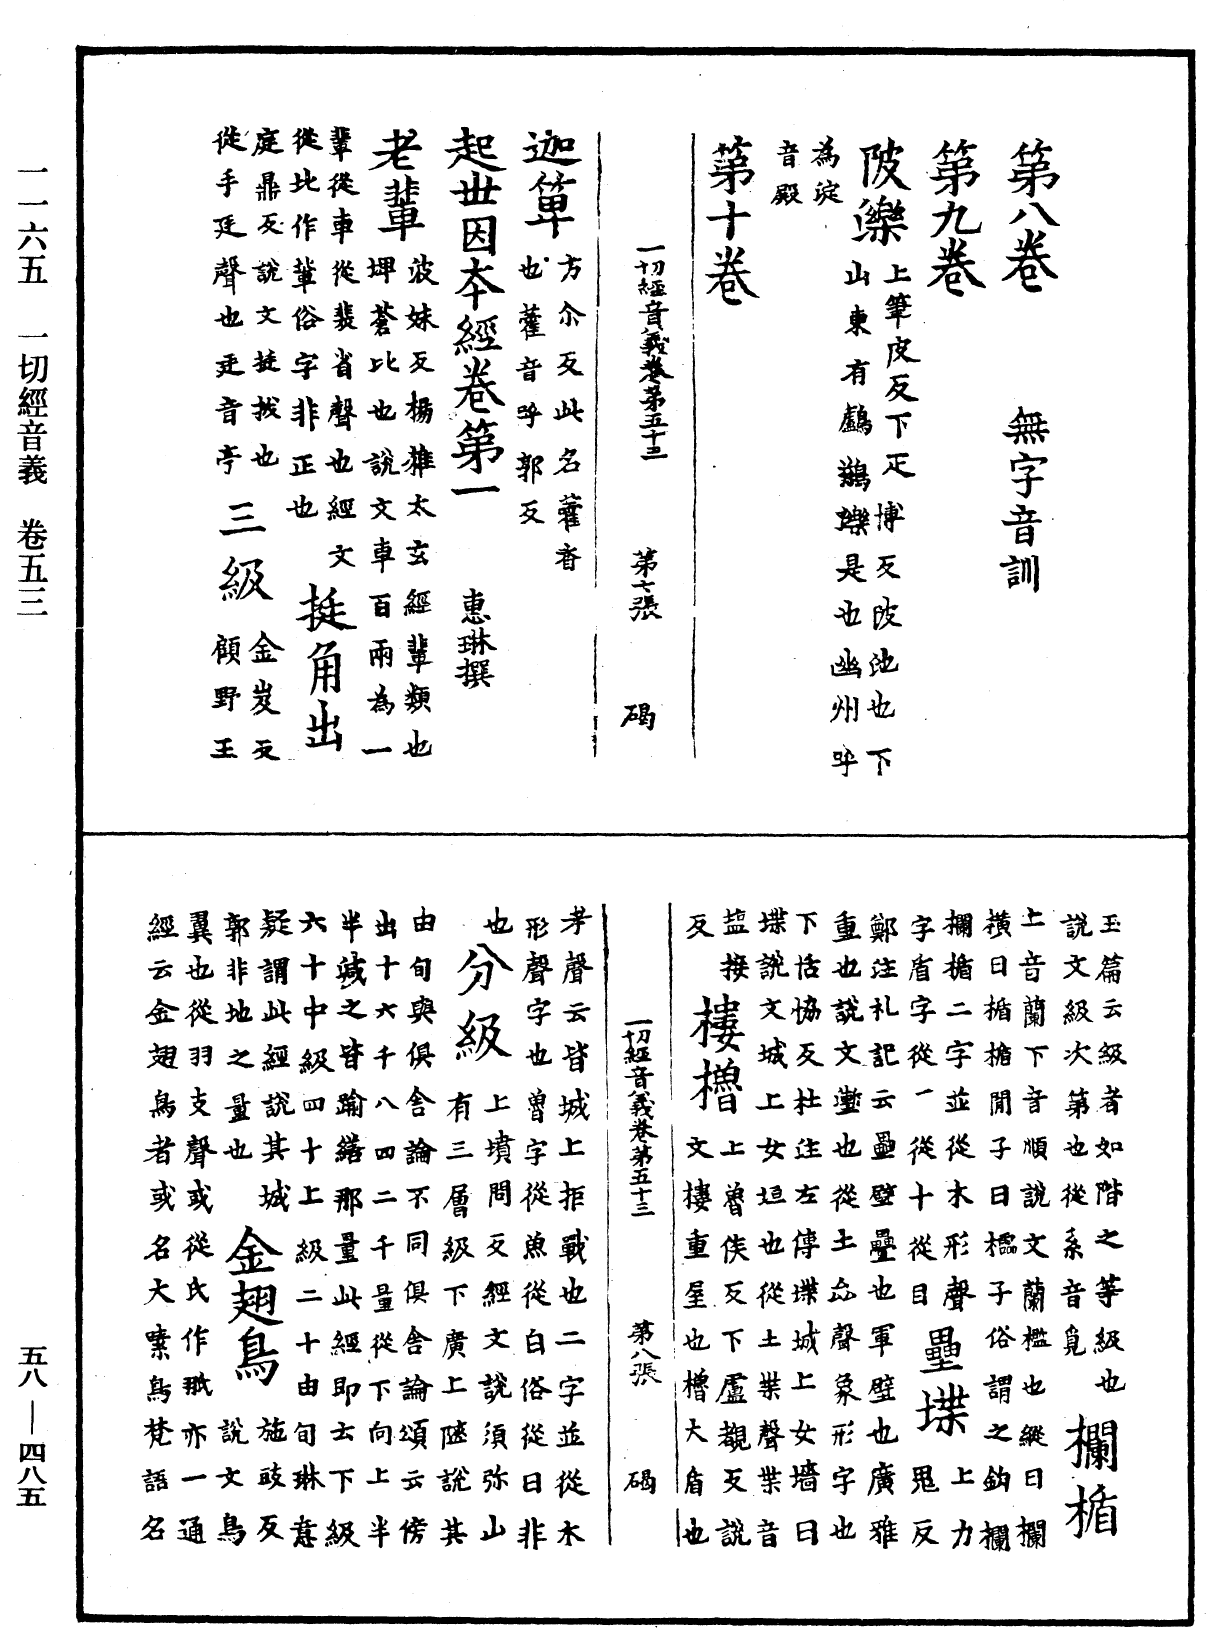 第八卷　無字音訓
第九卷
陂濼上筆皮反下疋博反陂池也下
山東有鸕鷀濼是也幽州呼
為淀
音殿
第十卷
一切經音義卷第五十三　第七張　碣
迦箄方尒反此名藿香
也藿音呼郭反
起世因本經卷第一　惠琳撰
老輩波妹反楊雄太玄經輩類也
埤蒼比也說文車百兩為一
輩從車從裴省聲也經文
從北作軰俗字非正也　挺角出
庭鼎反說文挺拔也
從手廷聲也廷音亭　三級金岌反
顧野王
玉篇云級者如階之等級也
說文級次第也從糸音覓　欄楯
上音蘭下音順說文蘭檻也縱曰欄
橫曰楯楯間子曰櫺子俗謂之鈎欄
欄楯二字並從木形聲
字盾字從一從十從目　壘堞上力
鬼反
鄭注礼記云壘壁壘也軍壁也廣雅
重也說文壍也從土厽聲象形字也
下恬協反杜注左傳堞城上女墻曰
堞說文城上女垣也從土枼聲枼音
盐接
反　樓櫓上魯侯反下盧覩反說
文樓重屋也櫓大盾也
一切經音義卷第五十三　第八張　碣
考聲云皆城上拒戰也二字並從木
形聲字也曽字從魚從白俗從日非
也　分級上墳問反經文說須弥山
有三層級下廣上陿說其
由旬與俱舍論不同俱舍論頌云傍
出十六千八四二千量從下向上半
半減之皆踰繕那量此經即士下級
六十中級四十上級二十由旬琳意
疑謂此經說其城
郭非地之量也　金翅鳥施豉反
說文鳥
翼也從羽支聲或從氏作翄亦一通
經云金翅鳥者或名大嗉鳥梵語名
一一六五　一切經音義　卷五三
五八—四八五